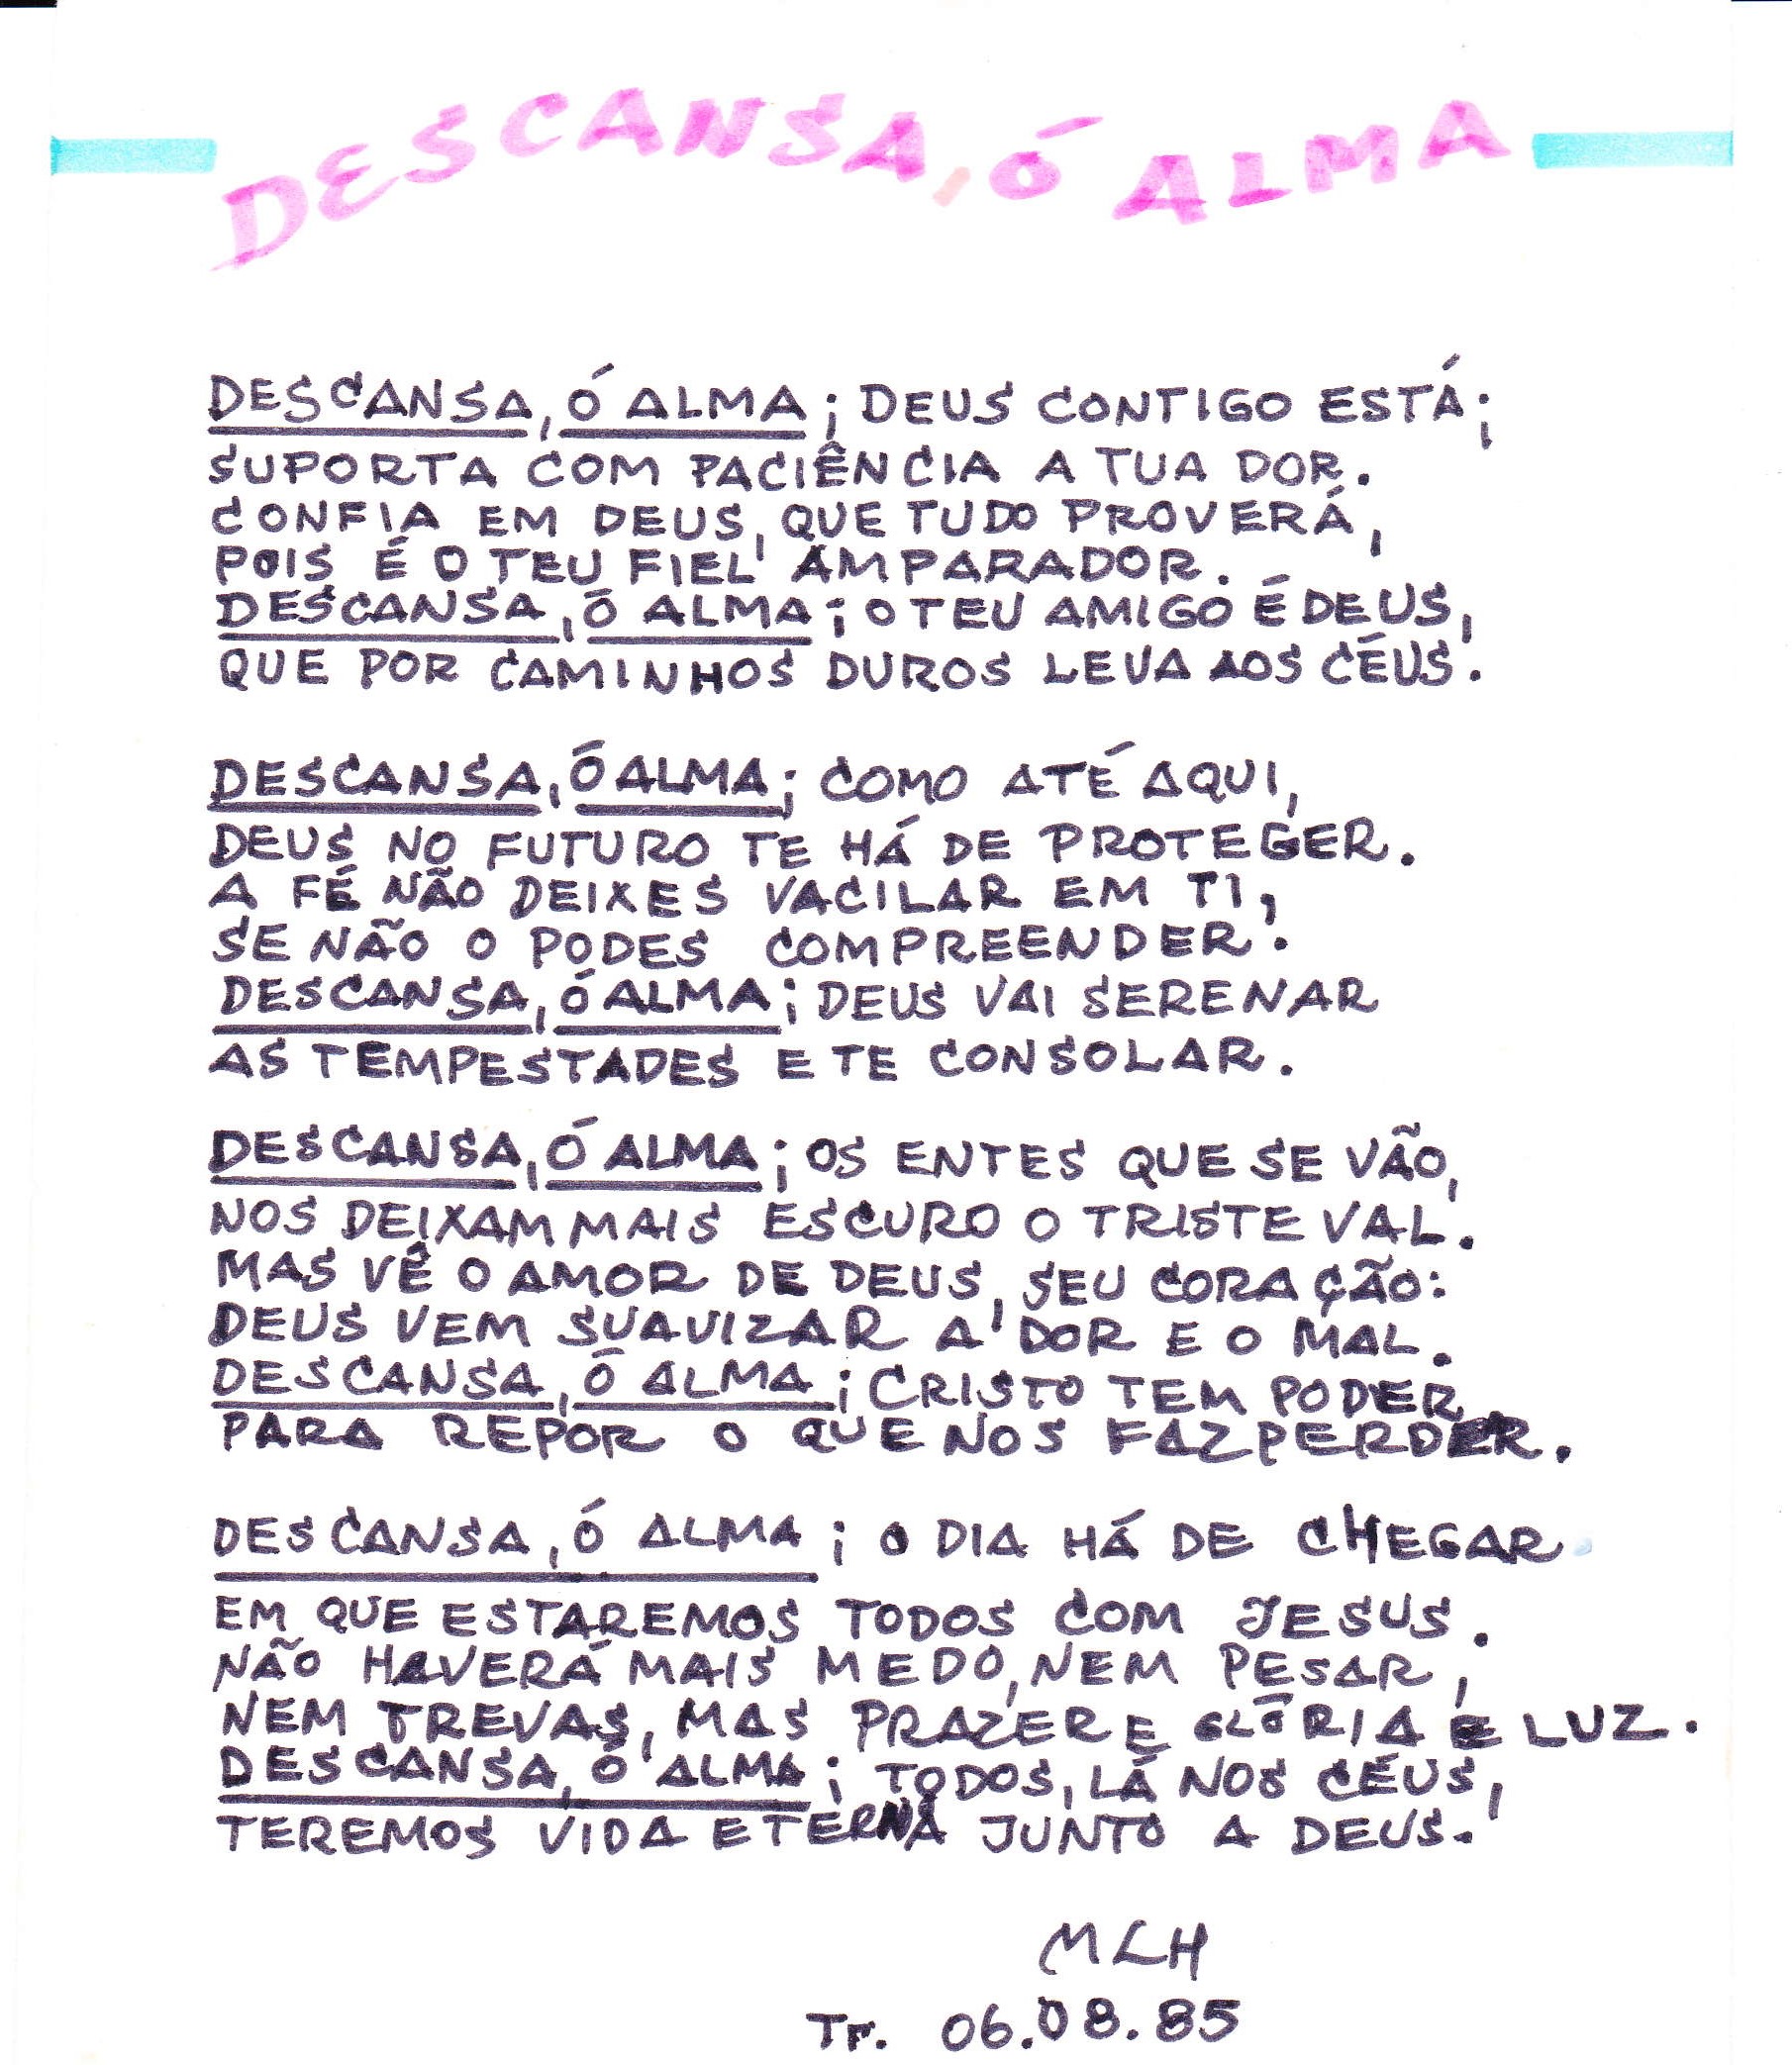 DESCANSA, Ó ALMA
DESCANSA, Ó ALMA; DEUS CONTIGO ESTÁ;
SUPORTA COM PACIÊNCIA A TUA DOR.
CONFIA EM DEUS, QUE TUDO PROVERÁ,
POIS É O TEU FIEL AMPARADOR.
DESCANSA, Ó ALMA; O TEU AMIGO É DEUS,
QUE POR CAMINHOS DUROS LEVA AOS CÉUS.
DESCANSA, Ó ALMA; COMO ATÉ AQUI,
DEUS NO FUTURO TE HÁ DE PROTEGER.
A FÉ NÃO DEIXES VACILAR EM TI,
SE NÃO O PODES COMPREENDER.
DESCANSA, Ó ALMA; DEUS VAI SERENAR
AS TEMPESTADES E TE CONSOLAR.
DESCANSA, Ó ALMA; OS ENTES QUE SE VÃO,
NOS DEIXAM MAIS ESCURO O TRISTE VAL.
MAS VÊ O AMOR DE DEUS, SEU CORAÇÃO:
DEUS VEM SUAVIZAR A DOR E O MAL.
DESCANSA, Ó ALMA; CRISTO TEM PODER
PARA REPOR O QUE NOS FAZ PERDER.
DESCANSA, Ó ALMA; O DIA HÁ DE CHEGAR
EM QUE ESTAREMOS TODOS COM JESUS.
NÃO HAVERÁ MAIS MEDO, NEM PESAR,
NEM TREVAS, MAS PRAZER E GLÓRIA E LUZ.
DESCANSA, Ó ALMA; TODOS, LÁ NOS CÉUS,
TEREMOS VIDA ETERNA JUNTO A DEUS.
MLH
Tr. 06.08.85